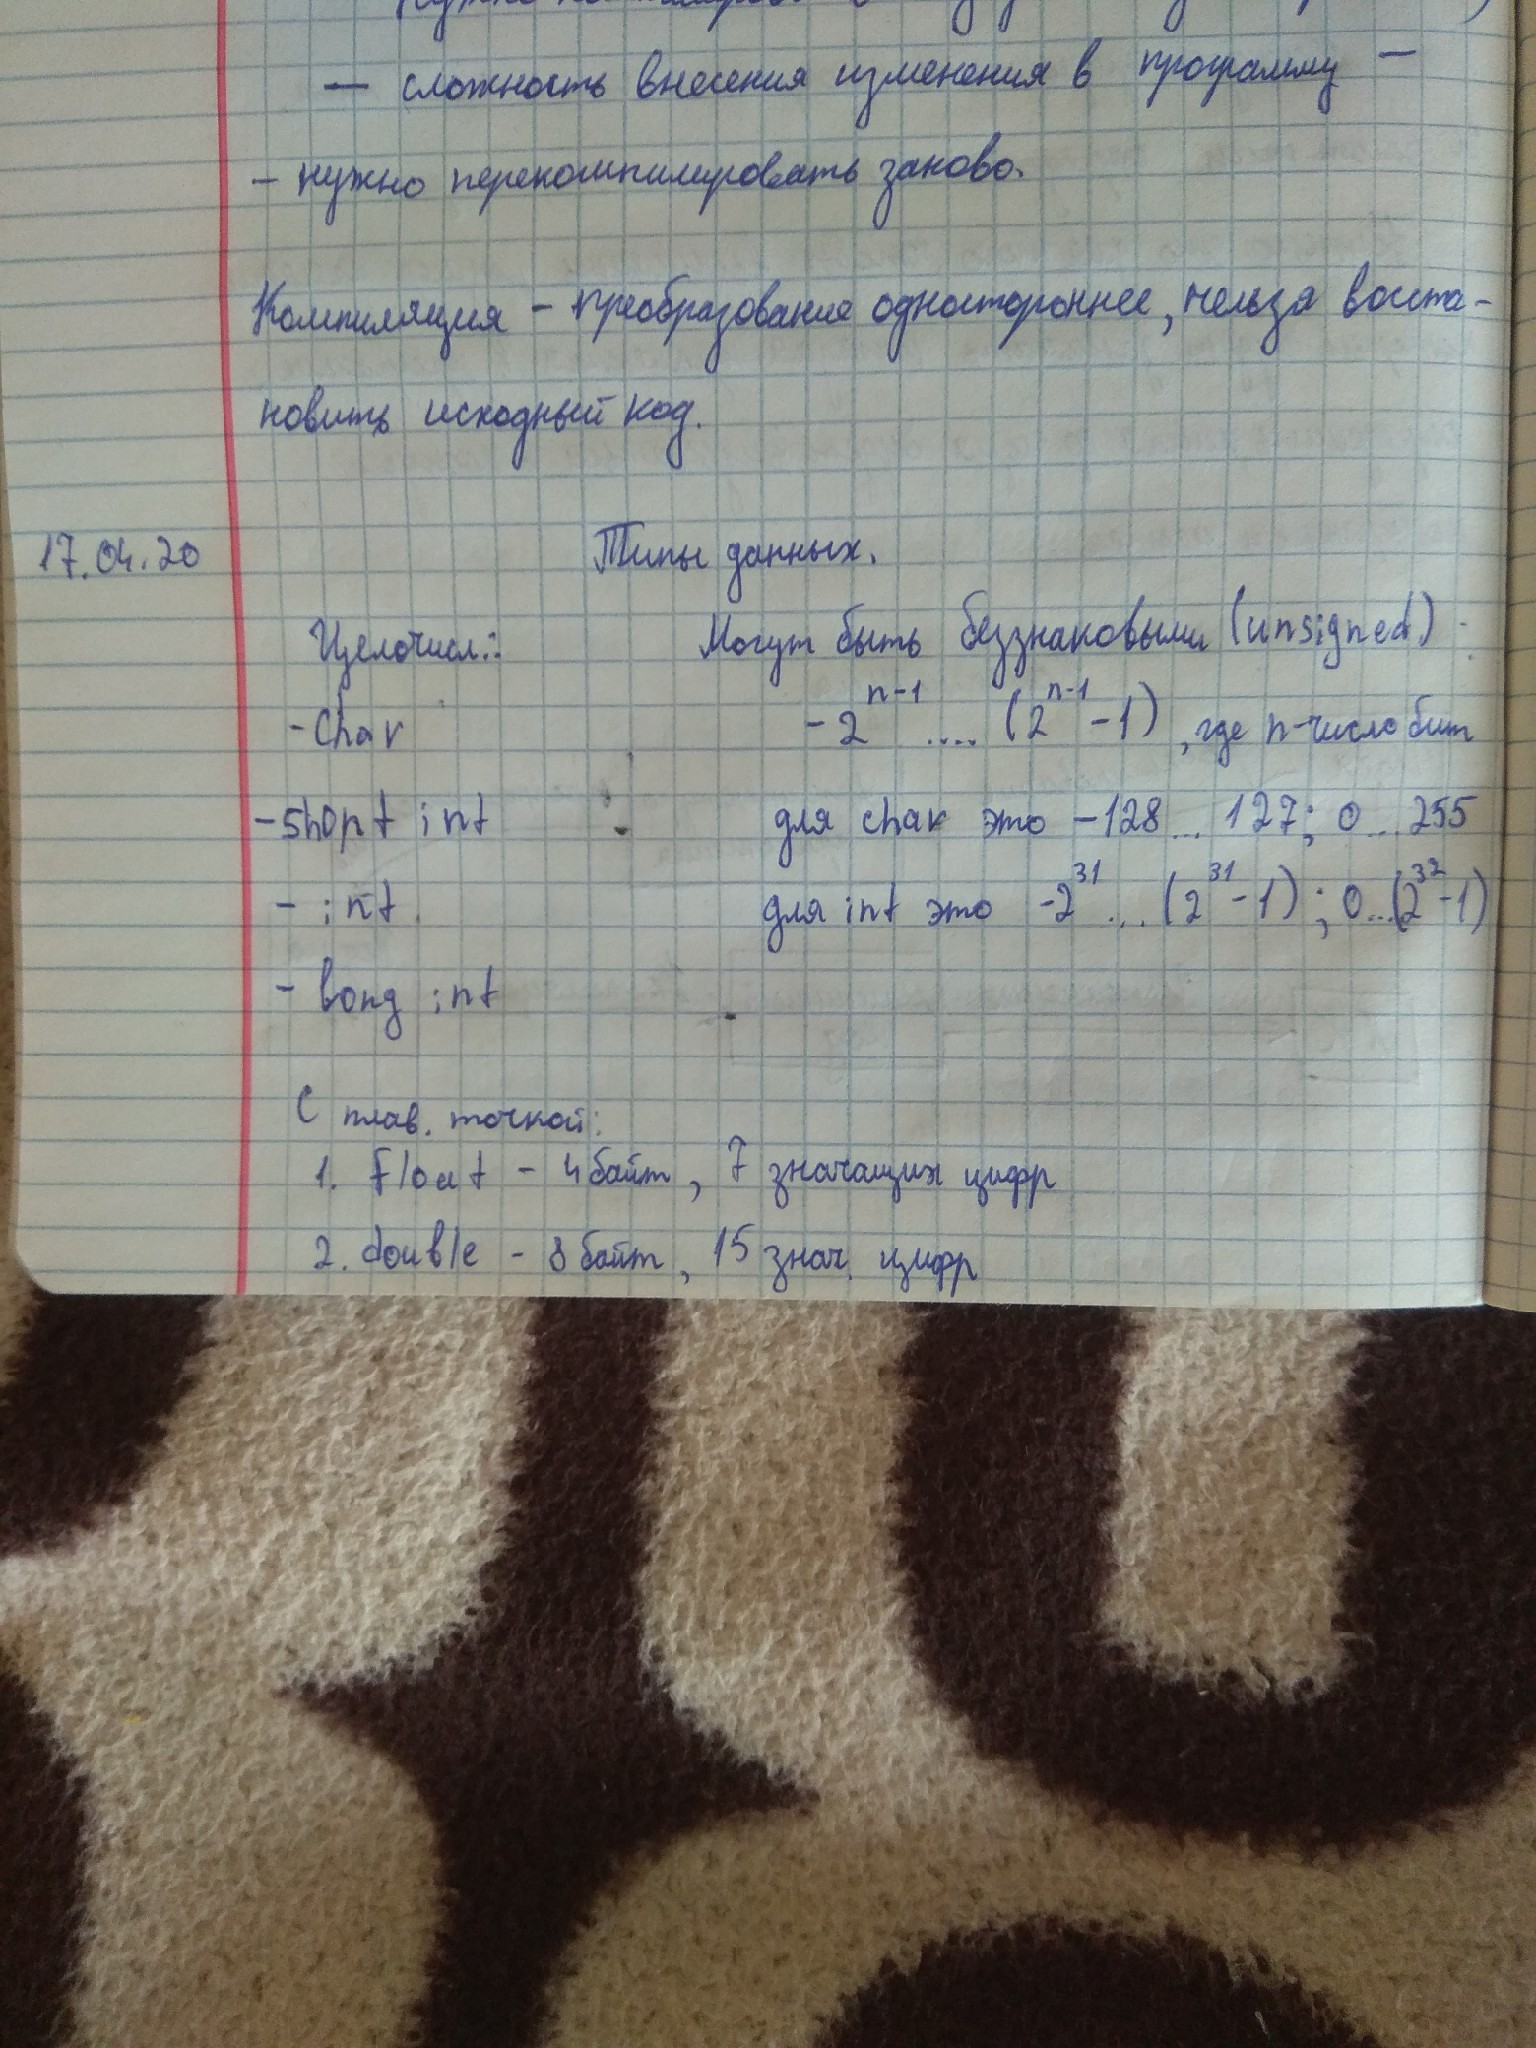 — сложность внесения изменения в программу —
- нужно перекомпилировать заново.
Компиляция - преобразование одностороннее, нельзя восста-
новить исходный код.
17.04.20 Типы данных.
Целочисл.: Могут быть беззнаковыми (unsigned)
- Char -2^(n-1) .... (2^(n-1) - 1), где n-число бит
- short int для char это -128... 127; 0...255
- int для int это -2^31 ... (2^31 - 1); 0...(2^32 - 1)
- long int
С плав. точкой:
1. float - 4 байт, 7 значащих цифр
2. double - 8 байт, 15 знач. цифр